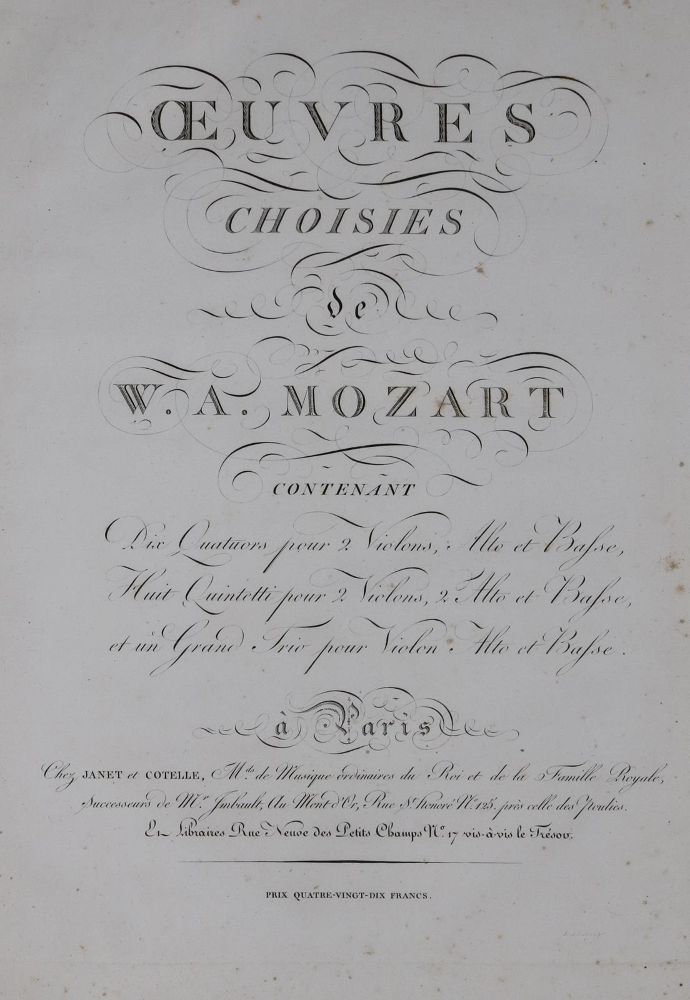 ŒUVRES
CHOISIES
de
W. A. MOZART
CONTENANT
Dix Quatuors pour 2 Violons, Alto et Basse,
Huit Quintetti pour 2 Violons, 2 Alto et Basse,
et un Grand Trio pour Violon Alto et Basse.
à Paris
Chez JANET et COTELLE, Mds de Musique ordinaires du Roi et de la Famille Royale,
Successeurs de Mr. Imbault, Au Mont d'Or, Rue St. honoré No. 125, près celle des Poulies.
Et Libraires Rue Neuve des Petits Champs No. 17 vis-à-vis le Trésor.
PRIX QUATRE-VINGT-DIX FRANCS.